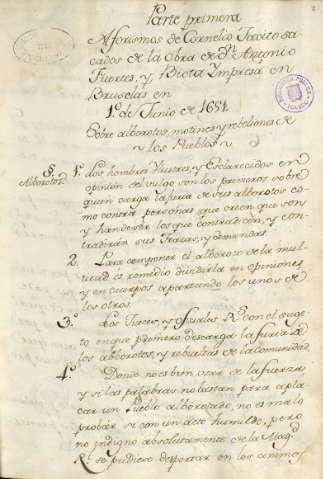 Parte primera
Aforismos de Cornelio Tacito sa
cados de la Obra de Dn. Antonio
Fuertes, y Biota Impresa en
Bruselas en
1.º de Junio de 1651.
Sobre alborotos, motines y rebeliones de
los Pueblos
§.
Alborotos.
1. Los hombres Ilustres, y Esclarecidos en
opinion del vulgo son los primeros sobre
quien carga la furia de sus alborotos co
mo contra personas que creen que son
y han de ser los que contradicen, y con
tradirán sus Trazas, y demandas.
2. Para componer el alboroto de la mul
titud es remedio dividirla en opiniones
y en cuerpos apartando los unos de
los otros.
3.º Los Jueces, y oficiales Rs. son el suge
to en que primero descarga la furia de
los alborotos, y rebueltas de la Comunidad.
4.º Donde no es bien usar de la fuerza
y si las palabras no bastan para apla
car un Pueblo alborotado, no es malo
probar si con un acto humilde, pero
no indigno absolutamente de la Magd.
Rl. se pudiese despertar en los animos